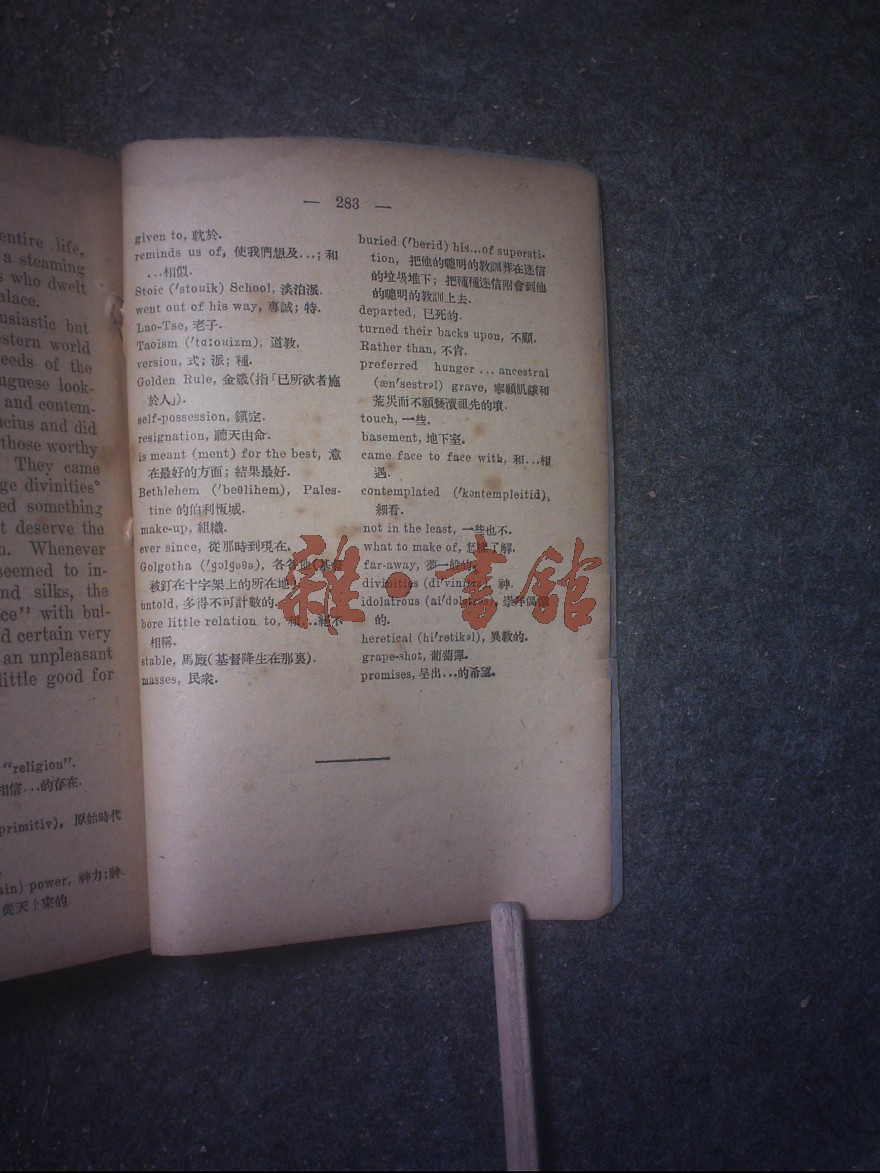 entire life,
a steaming
s who dwelt
alace.
usiastic but
estern world
eeds of the
uguese look-
and contem-
ucius and did
those worthy
They came
ge divinities°
ed something
t deserve the
n. Whenever
seemed to in-
nd silks, the
ce" with bul-
d certain very
an unpleasant
little good for
"religion".
相信...的存在.
primitiv), 原始時代
ain) power, 神力;神
從天上來的
— 283 —
given to, 耽於.
reminds us of, 使我們想及...; 和
...相似.
Stoic ('stouik) School, 淡泊派.
went out of his way, 專誠; 特.
Lao-Tse, 老子.
Taoism ('tɑːouizm), 道教.
version, 式; 派; 種.
Golden Rule, 金箴(指「已所欲者施
於人」).
self-possession, 鎮定.
resignation, 聽天由命.
is meant (ment) for the best, 意
在最好的方面; 結果最好.
Bethlehem ('beθlihem), Pales-
tine 的伯利恆城.
make-up, 組織.
ever since, 從那時到現在.
Golgotha ('gɔlgəθə), 各各他(基督
被釘在十字架上的所在地).
untold, 多得不可計數的.
bore little relation to, 和...絕不
相稱.
stable, 馬廄(基督降生在那裏).
masses, 民衆.
buried ('berid) his...of supersti-
tion, 把他的聰明的教訓葬在迷信
的垃圾堆下; 把種種迷信附會到他
的聰明的教訓上去.
departed, 已死的.
turned their backs upon, 不顧.
Rather than, 不肯.
preferred hunger ... ancestral
(æn'sestrəl) grave, 寧願飢餓和
荒災而不願褻瀆祖先的墳.
touch, 一些.
basement, 地下室.
came face to face with, 和...相
遇.
contemplated ('kɔntempleitid),
細看.
not in the least, 一些也不.
what to make of, 怎樣了解.
far-away, 夢一般的.
divinities (di'vinitiz), 神.
idolatrous (ai'dɔlətrəs), 崇拜偶像
的.
heretical (hi'retikəl), 異教的.
grape-shot, 葡萄彈.
promises, 呈出...的希望.
雜·書館